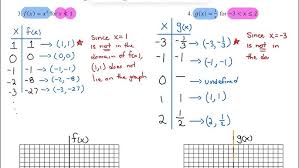 3) f(x) = x³ for x < 1
x f(x)
1 1 → (1,1)
0 0 → (0,0)
-1 -1 → (-1,-1)
-2 -8 → (-2,-8)
-3 -27 → (-3,-27)
Since x=1
is not in the
domain of f(x),
(1,1) does not
lie on the graph
f(x)
4. g(x) = 1/x for -3 < x ≤ 2
x g(x)
-3 -1/3 → (-3,-1/3)
-1 → (-1,-1)
0 → undefined
1 1 → (1,1)
2 1/2 → (2, 1/2)
Since x = -3
is not in
the do
g(x)